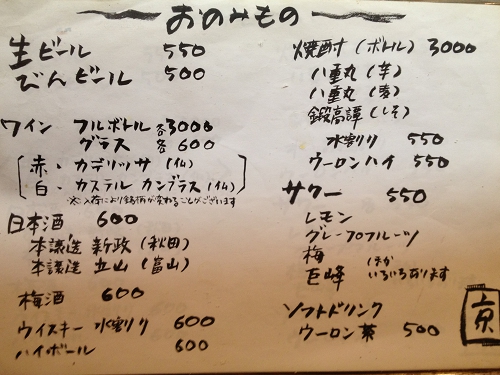 おのみもの
生ビール 550
びんビール 500
ワイン フルボトル 各3000
グラス 各600
赤・カデリッサ（仏）
白・カステル カンブラス（仏）
※入荷により銘柄が変わることがございます
日本酒 600
本譲造 新政（秋田）
本譲造 立山（富山）
梅酒 600
ウイスキー 水割り 600
ハイボール 600
焼酎（ボトル）3000
八重丸（芋）
八重丸（麦）
鍛高譚（しそ）
水割り 550
ウーロンハイ 550
サワー 550
レモン
グレープフルーツ
梅 ほか
巨峰 いろいろあります
ソフトドリンク
ウーロン茶 500
京